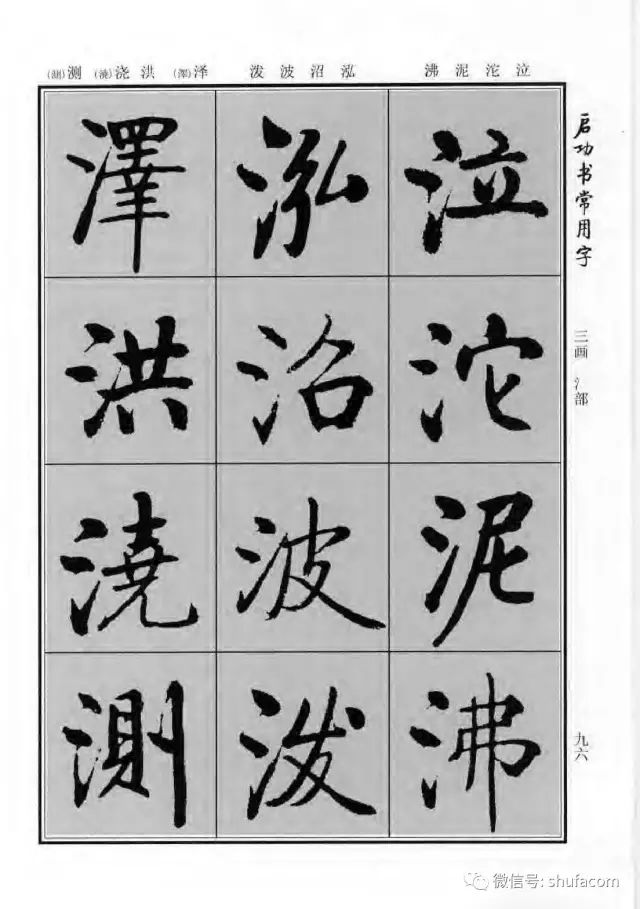 (測)测 (澆)浇 洪 (澤)泽 泼 波 沼 泓 沸 泥 沱 泣
启功书常用字
三画 氵部
九六
泣
沱
泥
沸
泓
沼
波
泼
澤
洪
澆
測
微信号: shufacom